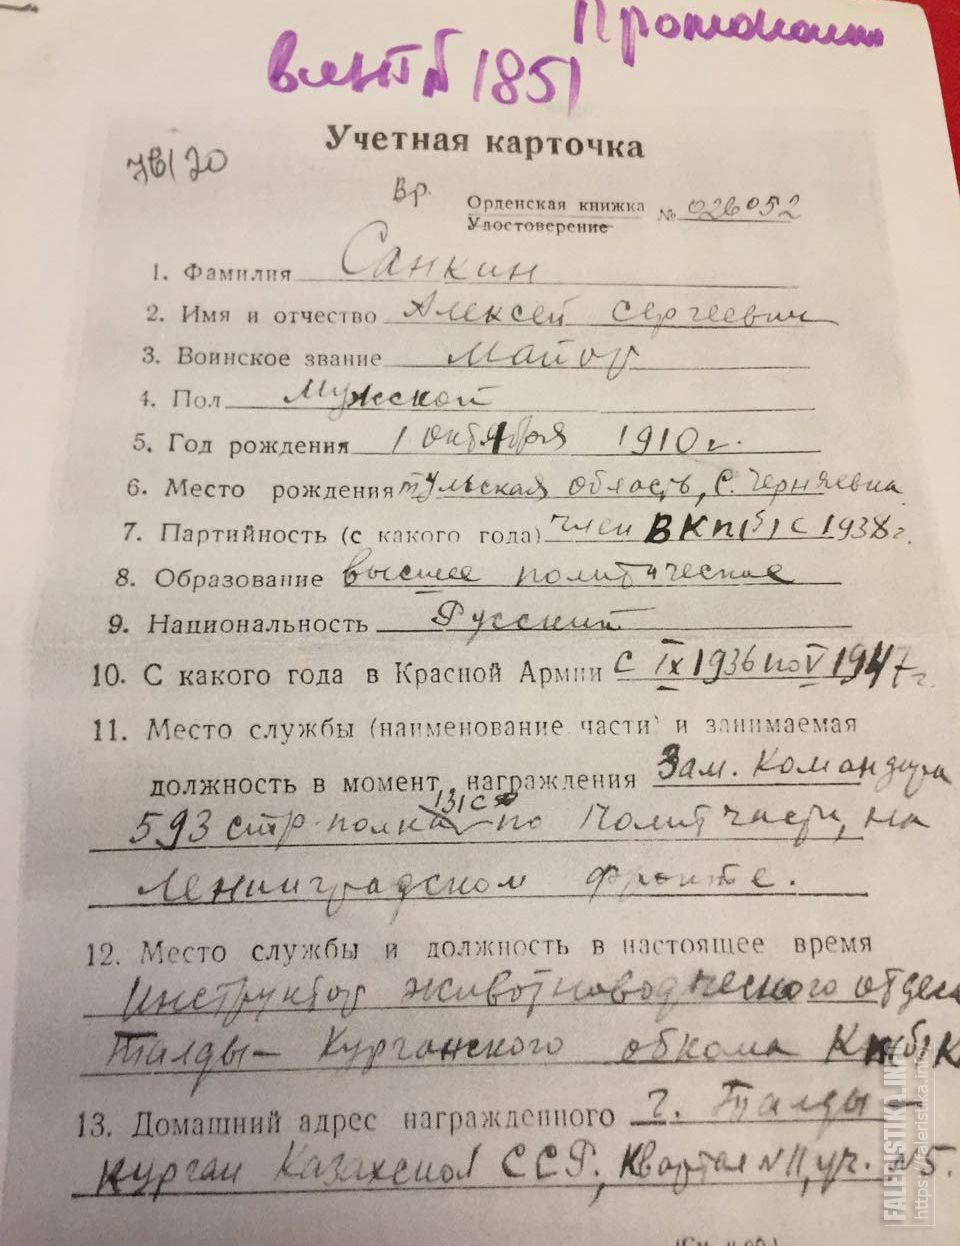 1851
Учетная карточка
Вр.
Орденская книжка № 026052
Удостоверение
1. Фамилия Санкин
2. Имя и отчество Алексей Сергеевич
3. Воинское звание Майор
4. Пол Мужской
5. Год рождения 1 октября 1910 г.
6. Место рождения Тульская область, с. Черняевка
7. Партийность (с какого года) член ВКП(б) с 1938 г.
8. Образование высшее политическое
9. Национальность Русский
10. С какого года в Красной Армии с IX 1936 по V 1947 г.
11. Место службы (наименование части) и занимаемая
должность в момент награждения Зам. Командира
131 СД
593 стр. полка по Политчасти, на
Ленинградском фронте.
12. Место службы и должность в настоящее время
Инструктор животноводческого отдела
Талды-Курганского обкома КП(б)К
13. Домашний адрес награжденного г. Талды-
Курган Казахской ССР, Квартал N 11, уч. N 5.
FALERISTIKA.INFO
https://faleristika.info